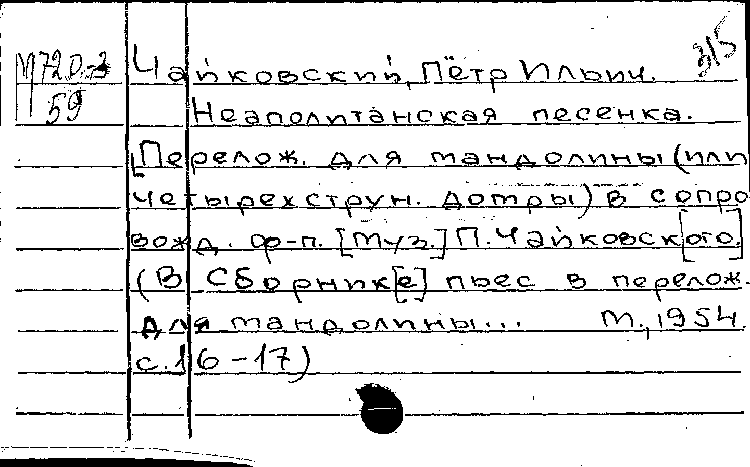 315
М720-3 Чайковский, Пётр Ильич.
59 Неаполитанская песенка.
[Перелож. для мандолины (или
четырехструн. домры) в сопро
вожд. ф-п. [Муз.] П. Чайковск[ого.]
(В Сборник[е] пьес в перелож.
для мандолины... М., 1954.
с. 16-17)